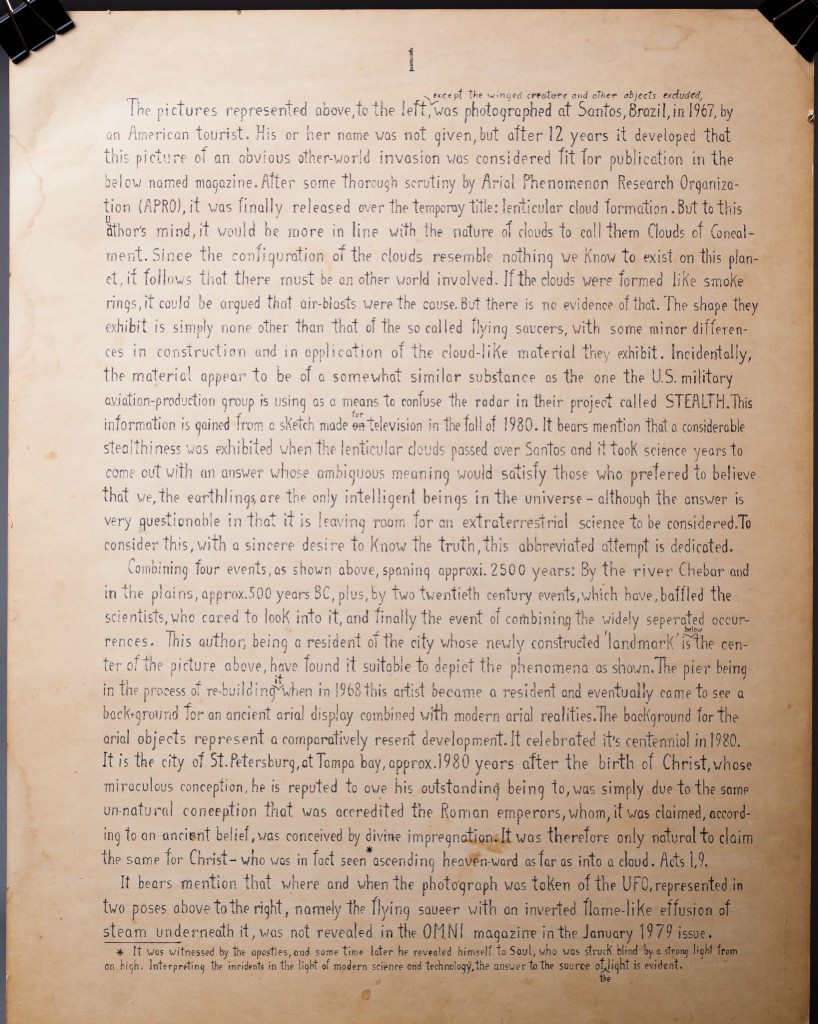 1
except the winged creature and other objects excluded,
The pictures represented above, to the left, was photographed at Santos, Brazil, in 1967, by
an American tourist. His or her name was not given, but after 12 years it developed that
this picture of an obvious other-world invasion was considered fit for publication in the
below named magazine. After some thorough scrutiny by Arial Phenomenon Research Organiza-
tion (APRO), it was finally released over the temporay title: lenticular cloud formation. But to this
u
athor's mind, it would be more in line with the nature of clouds to call them Clouds of Conceal-
ment. Since the configuration of the clouds resemble nothing we know to exist on this plan-
et, it follows that there must be an other world involved. If the clouds were formed like smoke
rings, it could be argued that air-blasts were the cause. But there is no evidence of that. The shape they
exhibit is simply none other than that of the so called flying saucers, with some minor differen-
ces in construction and in application of the cloud-like material they exhibit. Incidentally,
the material appear to be of a somewhat similar substance as the one the U.S. military
aviation-production group is using as a means to confuse the radar in their project called STEALTH. This
for
information is gained from a sketch made on television in the fall of 1980. It bears mention that a considerable
stealthiness was exhibited when the lenticular clouds passed over Santos and it took science years to
come out with an answer whose ambiquous meaning would satisfy those who prefered to believe
that we, the earthlings, are the only intelligent beings in the universe – although the answer is
very questionable in that it is leaving room for an extraterrestrial science to be considered. To
consider this, with a sincere desire to know the truth, this abbreviated attempt is dedicated.
Combining four events, as shown above, spaning approxi. 2500 years: By the river Chebar and
in the plains, approx. 500 years BC, plus, by two twentieth century events, which have, baffled the
scientists, who cared to look into it, and finally the event of combining the widely seperated occur-
below
rences. This author, being a resident of the city whose newly constructed 'landmark' is the cen-
ter of the picture above, have found it suitable to depict the phenomena as shown. The pier being
it
in the process of re-building when in 1968 this artist became a resident and eventually came to see a
back-ground for an ancient arial display combined with modern arial realities. The background for the
arial objects represent a comparatively resent development. It celebrated it's centennial in 1980.
It is the city of St. Petersburg, at Tampa bay, approx. 1980 years after the birth of Christ, whose
miraculous conception, he is reputed to owe his outstanding being to, was simply due to the same
un-natural conception that was accredited the Roman emperors, whom, it was claimed, accord-
ing to an ancient belief, was conceived by divine impregnation. It was therefore only natural to claim
the same for Christ – who was in fact seen * ascending heaven-ward as far as into a cloud. Acts 1,9.
It bears mention that where and when the photograph was taken of the UFO, represented in
two poses above to the right, namely the flying saucer with an inverted flame-like effusion of
steam underneath it, was not revealed in the OMNI magazine in the January 1979 issue.
* It was witnessed by the apostles, and some time later he revealed himself to Saul, who was struck blind by a strong light from
on high. Interpreting the incidents in the light of modern science and technology, the answer to the source of light is evident.
the